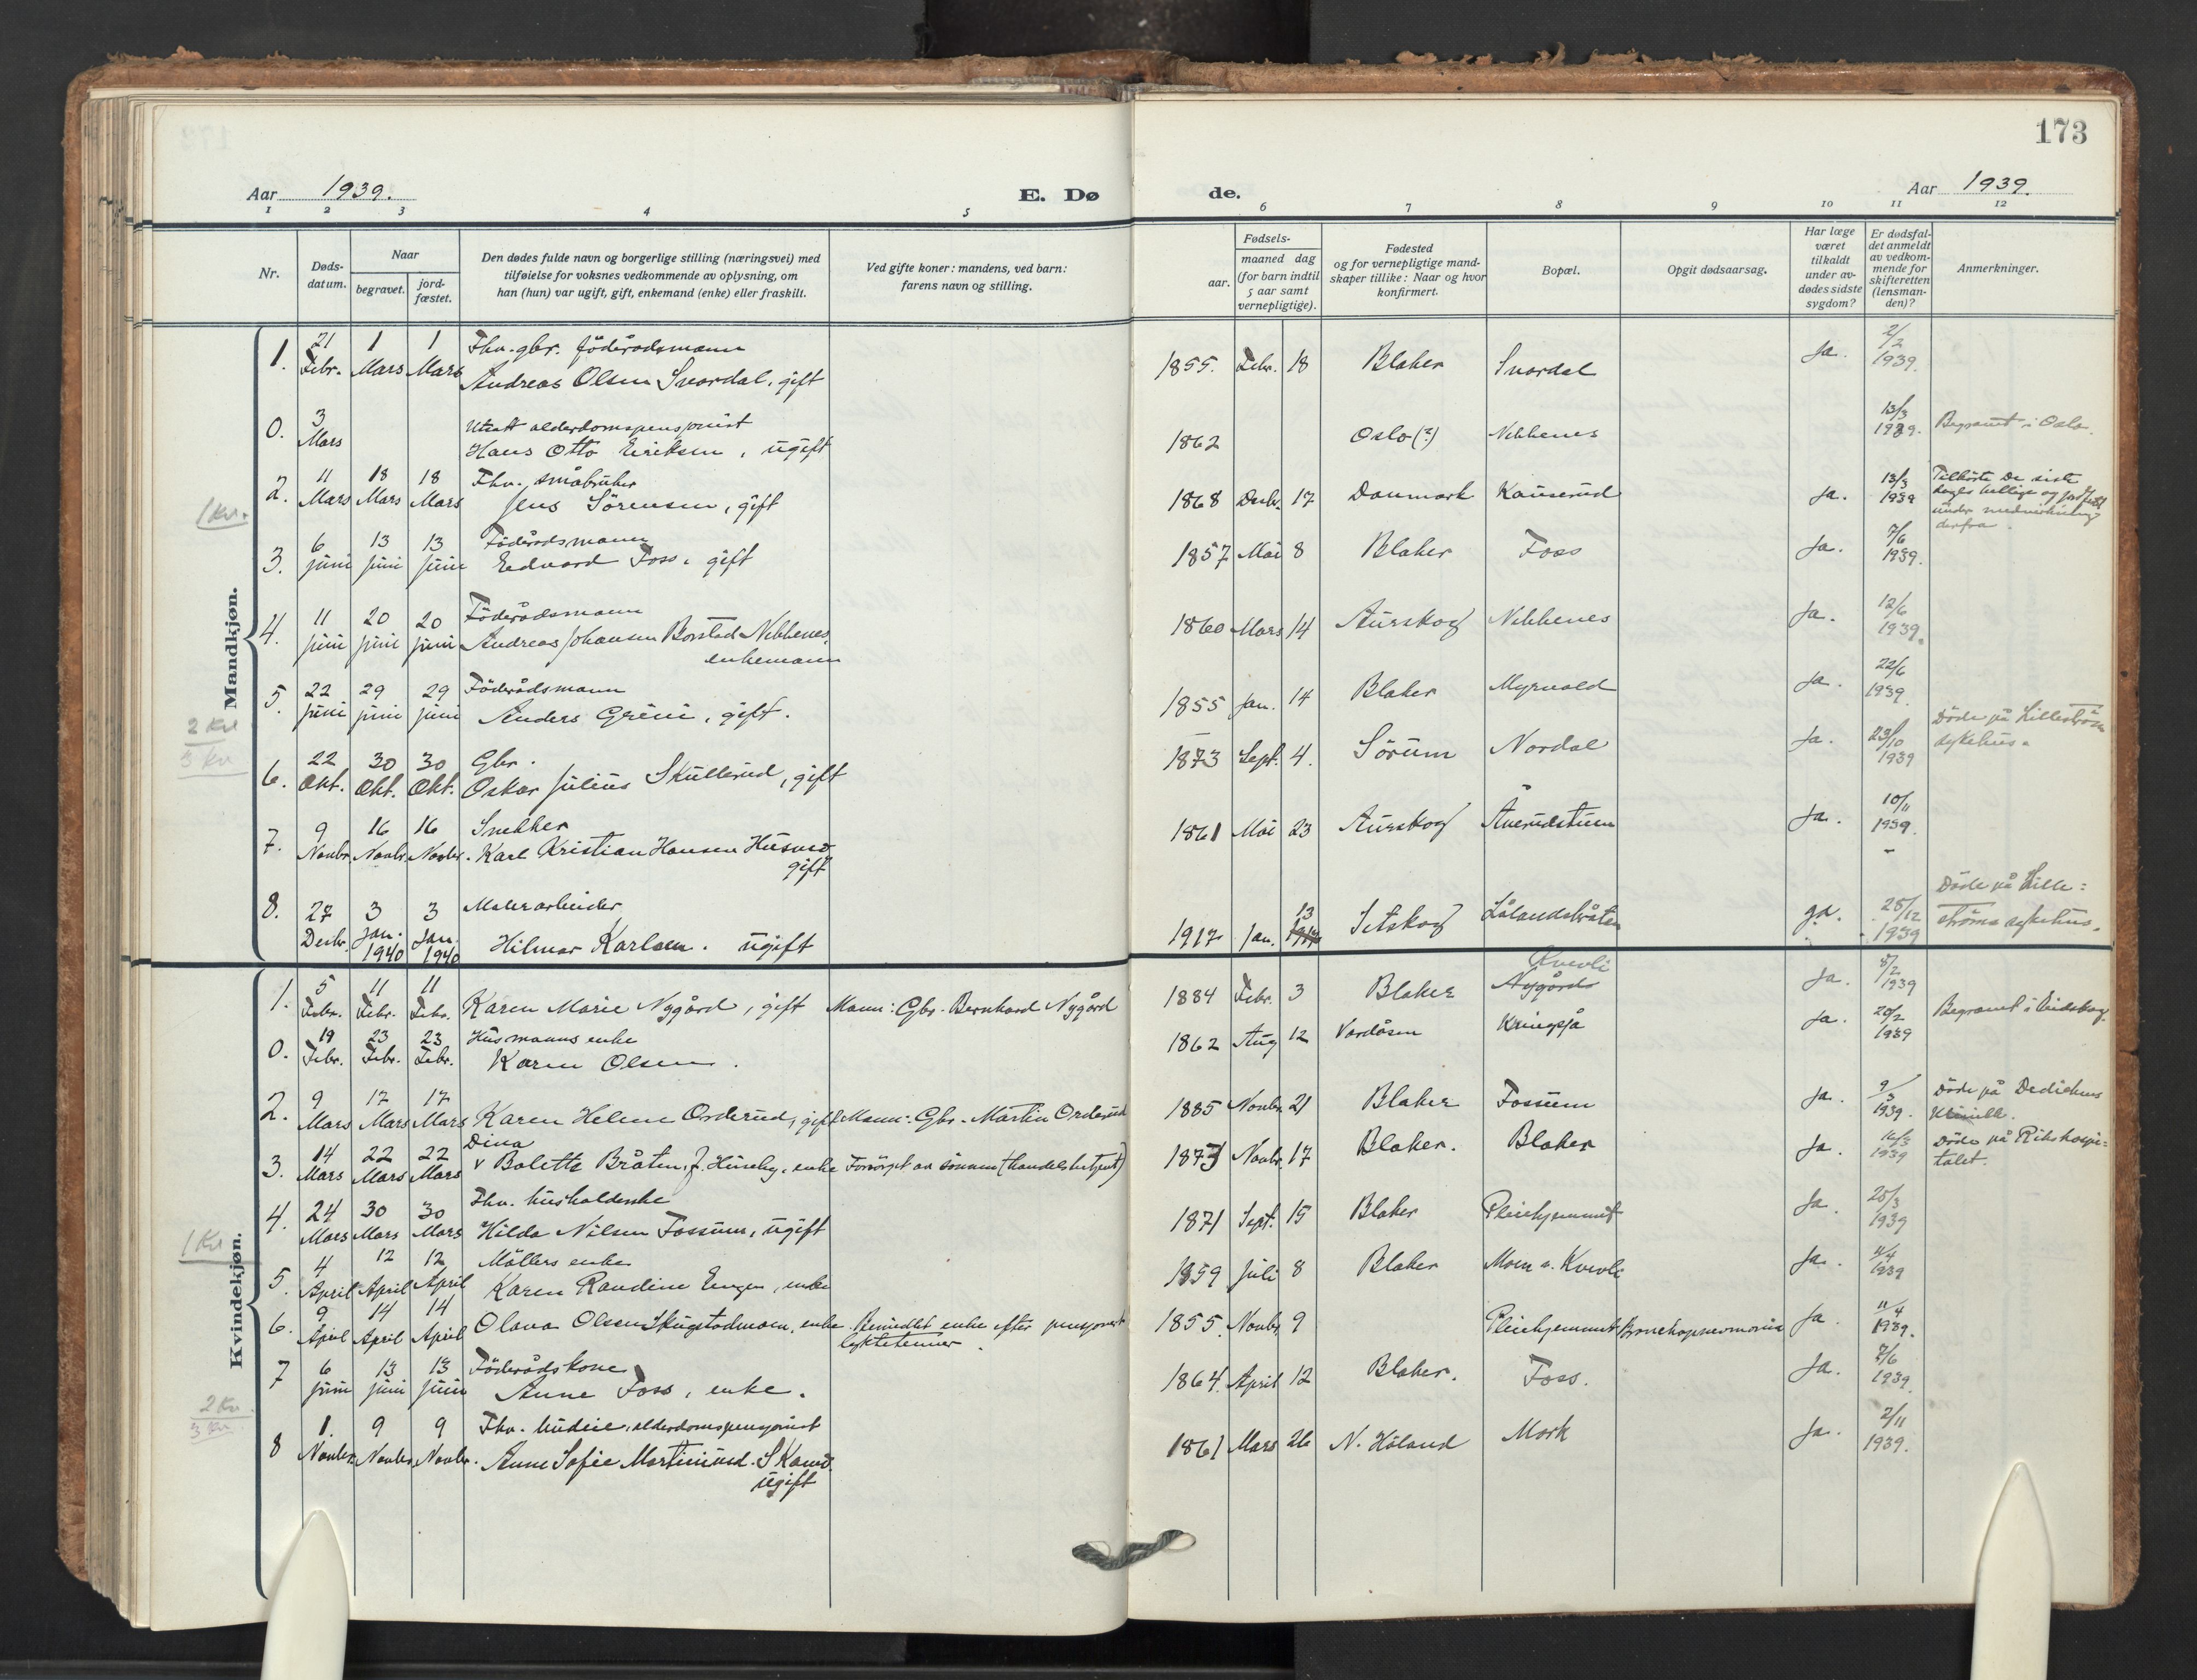 173
Aar 1939. E. Dø de. Aar 1939.
1 2 3 4 5 6 7 8 9 10 11 12
Nr.
Døds-
datum.
Naar
begravet.
jord-
fæstet.
Den dødes fulde navn og borgerlige stilling (næringsvei) med
tilføielse for voksnes vedkommende av oplysning, om
han (hun) var ugift, gift, enkemand (enke) eller fraskilt.
Ved gifte koner: mandens, ved barn:
farens navn og stilling.
Fødsels-
aar.
maaned dag
(for barn indtil
5 aar samt
vernepligtige).
Fødested
og for vernepligtige mand-
skaper tillike: Naar og hvor
konfirmert.
Bopæl.
Opgit dødsaarsag.
Har læge
været
tilkaldt
under av-
dødes sidste
sygdom?
Er dødsfal-
det anmeldt
av vedkom-
mende for
skifteretten
(lensman-
den)?
Anmerkninger.
Mandkjøn.
1. 21 Febr. 1 Mars 1 Mars Fhv. gbr. föderådsmann
Andreas Olsen Svardal, gift 1855. Febr. 18 Blaker Svardal Ja. 2/2 1939.
0. 3 Mars alderdomspensjonist
Hans Otto Eriksen, ugift 1862 Oslo (?) Nebbenes 13/3 1939. Begravet i Oslo.
1 Kv.
2. 11 Mars 18 Mars 18 Mars Fhv. småbruker
Jens Sörensen, gift 1868 Desbr. 17 Danmark Kauserud Ja. 13/3 1939 Tilhörte De siste
dages hellige og jordfestet
under medvirkning
derfra.
3. 6 juni 13 juni 13 juni Föderådsmann
Edvard Foss, gift 1857 Mai 8 Blaker Foss Ja. 7/6 1939.
4. 11 juni 20 juni 20 juni Föderådsmann
Andreas Johansen Borstad Nebbenes,
enkemann 1860 Mars 14 Aurskog Nebbenes Ja. 12/6 1939.
5. 22 juni 29 juni 29 juni Föderådsmann
Anders Greni, gift. 1855 Jan. 14 Blaker Myrvold Ja. 22/6 1939.
2 Kv
3 Kv
6. 22 Okt. 30 Okt. 30 Okt. Gbr.
Oskar Julius Skullerud, gift 1873 Sept. 4. Sörum Nordal Ja. 23/10 1939 Döde på Lilleström
sykehus.
7. 9 Novbr. 16 Novbr. 16 Novbr. Snekker
Karl Kristian Hansen Husmo
gift 1861 Mai 23 Aurskog Åverudstuen Ja. 10/11 1939.
8. 27 Desbr. 3 Jan. 1940 3 Jan. 1940 Malerarbeider
Hilmar Karlsen. ugift 1917 Jan. 13 Setskog Lålandsbråten ja. 28/12 1939 Döde på Lille=
ströms sykehus.
Kvindekjøn.
1. 5 Febr. 11 Febr. 11 Febr. Karen Marie Nygård, gift Mann: Gbr. Bernhard Nygård 1884 Febr. 3 Blaker Nygård Kvevli Ja. 8/2 1939
0. 19 Febr. 23 Febr. 23 Febr. Husmanns enke
Karen Olsen. 1862 Aug 12 Vardåsen Kringsjå Ja. 20/2 1939 Begravet i Eidskog.
2. 9 Mars 17 Mars 17 Mars Karen Helene Orderud, gift Mann: Gbr. Martin Orderud 1885 Novbr. 21 Blaker Fossum Ja. 9/3 1939. Döde på Dedichens
Klinikk.
3. 14 Mars 22 Mars 22 Mars Dina
v Bolette Bråten, f. Huseby, enke Forsörget av sönnen (handelsbetjent) 1873 Novbr. 17 Blaker. Blaker Ja. 16/3 1939 Döde på Rikshospi=
talet.
4. 24 Mars 30 Mars 30 Mars Fhv. husholderske
Hilda Nilsen Fossum, ugift 1871 Sept. 15 Blaker Pleiehjemmet Ja. 25/3 1939
1 Kv
5. 4 April 12 April 12 April Möllers enke
Karen Randine Engen, enke 1859 Juli 8 Blaker Moen u. Kvevli Ja. 4/4 1939
6. 9 April 14 April 14 April Olava Olsen Skugstadmoen, enke. Bemidlet enke efter pensjonert
lyktetenner. 1855. Novbr. 9 Pleiehjemmet Bronchopneumonia Ja. 11/4 1939.
7 6 juni 13 juni 13 juni Föderådskone
Anne Foss, enke. 1864. April 12 Blaker. Foss. Ja. 7/6 1939.
2 Kv.
3 Kv.
8 1. Novbr. 9 Novbr. 9 Novbr. Fhv. budeie, alderdomspensjonist
Anne Sofie Martinusd. Skand.
ugift 1861 Mars 26 N. Höland Mork Ja. 2/11 1939.